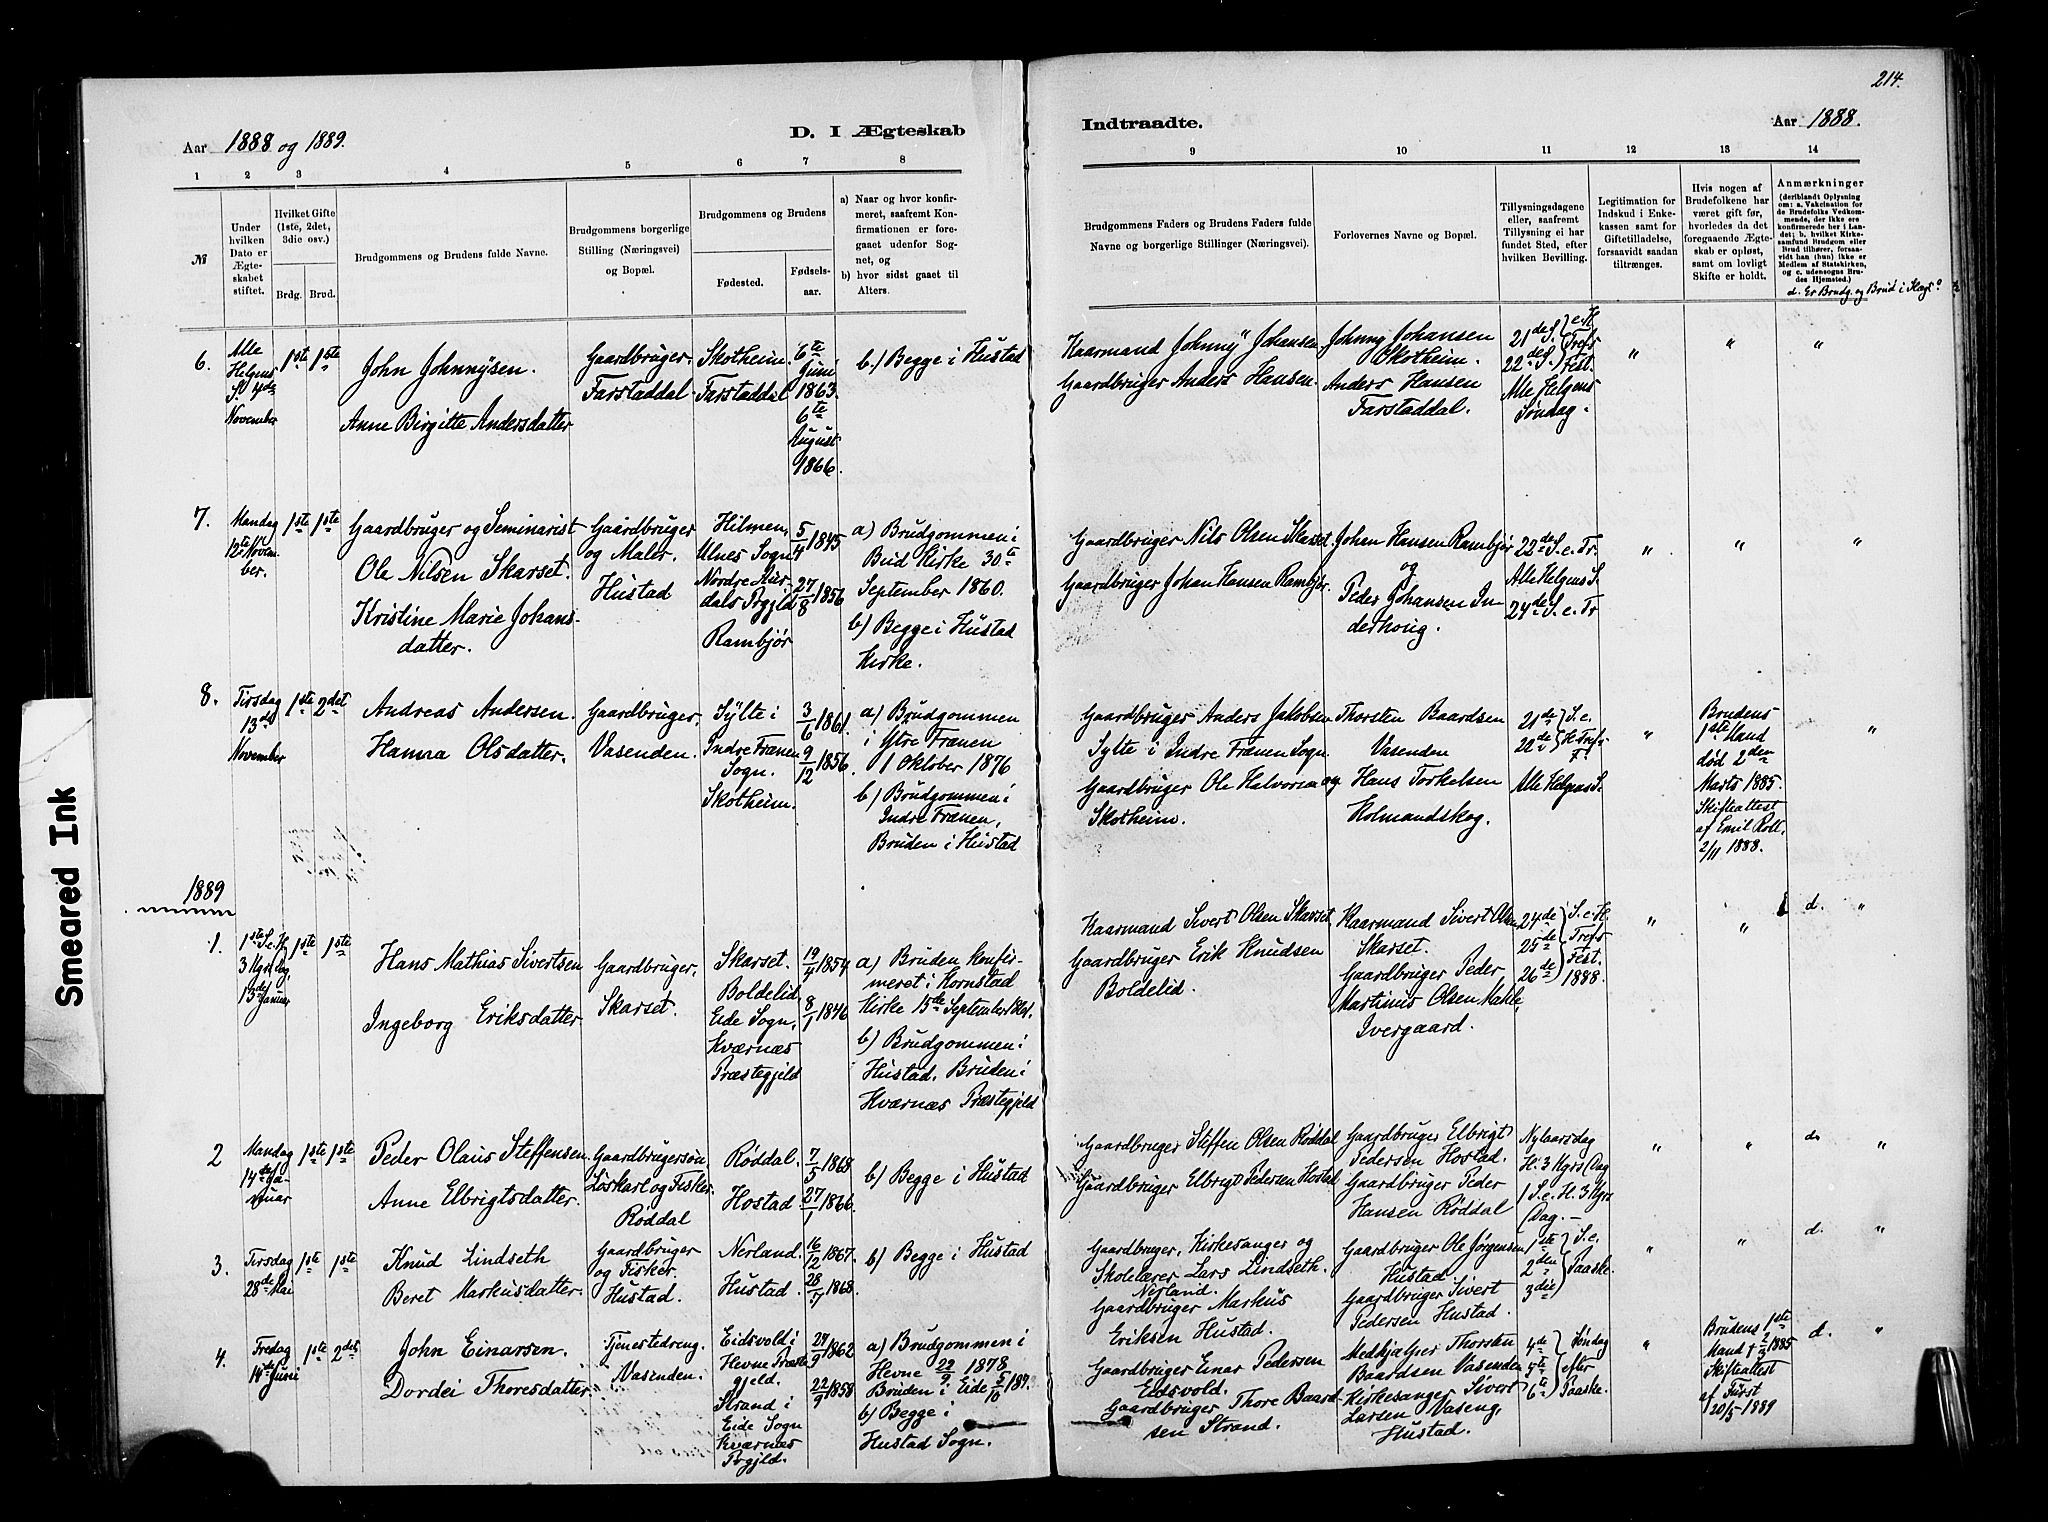 214.
Aar 1888 og 1889.
D. I Ægteskab
Indtraadte.
Aar 1888.
1 2 3 4 5 6 7 8
9 10 11 12 13 14
№
Under hvilken Dato er Ægteskabet stiftet.
Hvilket Gifte (1ste, 2det, 3die osv.)
Brdg.
Brud.
Brudgommens og Brudens fulde Navne.
Brudgommens borgerlige Stilling (Næringsvei) og Bopæl.
Brudgommens og Brudens
Fødested.
Fødselsaar.
a) Naar og hvor konfirmeret, saafremt Konfirmationen er foregaaet udenfor Sognet, og
b) hvor sidst gaaet til Alters.
Brudgommens Faders og Brudens Faders fulde Navne og borgerlige Stillinger (Næringsvei).
Forlovernes Navne og Bopæl.
Tillysningsdagene eller, saafremt Tillysning ei har fundet Sted, efter hvilken Bevilling.
Legitimation for Indskud i Enkekassen samt for Giftetilladelse, forsaavidt saadan tiltrænges.
Hvis nogen af Brudefolkene har været gift før, hvorledes da det foregaaende Ægteskab er opløst, samt om lovligt Skifte er holdt.
Anmærkninger
(deriblandt Oplysning om: a. Vakcination for de Brudefolks Vedkommende, der ikke ere konfirmerede her i Landet; b. hvilket Kirkesamfund Brudgom eller Brud tilhører, forsaavidt han (hun) ikke er Medlem af Statskirken, og c. udensogns Brudes Hjemsted.)
d. Er Brudg. og Brud i Slægt
6.
Alle
Helgens
S. 4de
November
1ste 1ste
John Johnnÿsen.
Anne Birgitte Andersdatter
Gaardbruger.
Farstaddal
Skotheim.
Farstaddal
6te
Juni
1863.
6te
August
1866.
b.) Begge i Hustad
Kaarmand Johnnÿ Johansen
Gaardbruger Anders Hansen.
Johnny Johansen
Skotheim.
Anders Hansen
Farstaddal.
21de S. e. H
22de S. Trefs Fest.
Alle Helgens
Søndag.
" " "
7.
Mandag
12te Novem-
ber.
1ste 1ste
Gaardbruger og Seminarist
Ole Nilsen Skarset.
Kristine Marie Johans-
datter.
Gaardbruger
og Maler.
Hustad
Hilmen,
Ulnes Sogn
Nordre Aur-
dals Prgjld
Rambjør
5/4 1845
27/8 1856
a) Brudgommen i
Bud Kirke 30te
September 1860.
b) Begge i Hustad
Kirke.
Gaardbruger Nils Olsen Skarset
Gaardbruger Johan Hansen Rambjør.
Johan Hansen Rambjør
og
Peder Johansen In-
derhoug.
22de S. e. Tr.
Alle Helgens S.
24de S. e. Tr
" " "
8.
Tirsdag
13de
November
1ste 2det
Andreas Andersen.
Hanna Olsdatter.
Gaardbruger,
Vasenden.
Sylte i
Indre Frænen
Sogn.
Skotheim.
3/6 1861.
9/12 1856.
a) Brudgommen
i Ytre Frænen
1 Oktober 1876
b) Brudgommen i
Indre Frænen,
Bruden i Hustad
Gaardbruger Anders Jakobsen
Sylte i Indre Frænen Sogn.
Gaardbruger Ole Halvorsen
Skotheim.
Thorsten Baardsen
Vasenden
og Hans Torkelsen
Holmandskog.
21de S. e.
22de H. Trefs F.
Alle Helgens S.
"
Brudens
1ste Mand
død 2den
Marts 1885.
Skifteattest
af Emil Roll.
2/11 1888.
"
1889
1.
1ste S. e. H.
3 Kgrs Dag
13de Januar
1ste 1ste
Hans Mathias Sivertsen
Ingeborg Eriksdatter
Gaardbruger,
Skarset.
Skarset.
Boldelid,
Eide Sogn,
Kværnæs
Præstegjeld
19/4 1854
8/1 1846
a) Bruden konfir-
meret i Kornstad
Kirke 15de September 1861.
b) Brudgommen i
Hustad. Bruden i
Kværnæs Præstegjeld
Kaarmand Sivert Olsen Skarset
Gaardbruger Erik Knudsen
Boldelid.
Kaarmand Sivert Olsen
Skarset.
Gaardbruger Peder
Martinus Olsen Male,
Ivergaard.
24de S. e. H.
25de Trefs Fest.
26de 1888.
" " d. "
2
Mandag
14de Ja-
nuar
1ste 1ste
Peder Olaus Steffensen.
Anne Elbrigtsdatter.
Gaardbrugersøn,
Løskarl og Fisker.
Røddal
Røddal.
Hostad.
7/5 1865
27/1 1866.
b) Begge i Hustad
Gaardbruger Steffen Olsen Røddal
Gaardbruger Elbrigt Pedersen Hostad
Gaardbruger Elbrigt
Pedersen Hostad.
Gaardbruger Peder
Hansen Røddal
Nyaarsdag
H. 3 Kgrs Dag
1 S. e. H. 3 Kgrs
Dag.
" " d. "
3.
Tirsdag
28de Mai
1ste 1ste
Knud Lindseth
Beret Markusdatter.
Gaardbruger
og Fisker.
Hustad.
Nerland.
Hustad.
16/12 1867.
28/7 1868.
b) Begge i Hustad
Gaardbruger, Kirkesanger og
Skolelærer Lars Lindseth.
Nerland.
Gaardbruger Markus
Eriksen Hustad.
Gaardbruger Ole Jørgensen
Hustad
Gaardbruger Sivert
Pedersen Hustad.
1ste S. e.
2den Paaske.
3die
" " d. "
4.
Fredag
14de Juni
1ste 2det
John Einarsen.
Dordei Thoresdatter.
Tjenestedreng.
Vasenden.
Eidsvold i
Hevne Præste-
gjeld.
Strand i
Eide Sogn
Kværnæs
Prgjld.
24/9 1862
22/9 1858
a) Brudgommen i
Hevne 22/9 1878
Bruden i Eide 5/10 187.
b) Begge i
Hustad Sogn.
Gaardbruger Einar Pedersen
Eidsvold.
Gaardbruger Thore Baard-
sen Strand.
Medhjælper Thorsten
Baardsen Vasenden
Kirkesanger Sivert
Larsen Vaseng,
Hustad.
4de Søndag
5te efter
6te Paaske.
"
Brudens 1ste
Mand † 2/3 1885
Skifteattest
af Fürst
20/5 1889
d. "
Smeared Ink